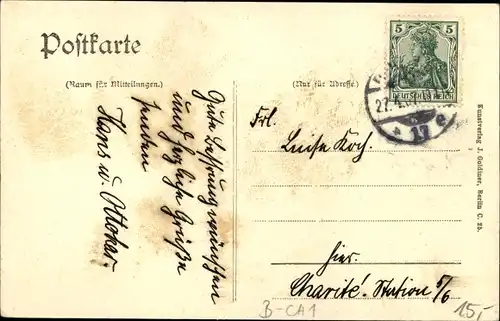 Postkarte
(Raum für Mitteilungen.)
(Nur für Adresse.)
5
DEUTSCHES REICH
27.4.
* 17 e
Gute Besserung wünschen
und herzliche Grüße
senden
Hans u. Ottokar.
Frl.
Luise Koch.
hier.
Charité. Station 5/6
Kunstverlag J. Goldiner, Berlin C. 25.
B-CA1
15,-